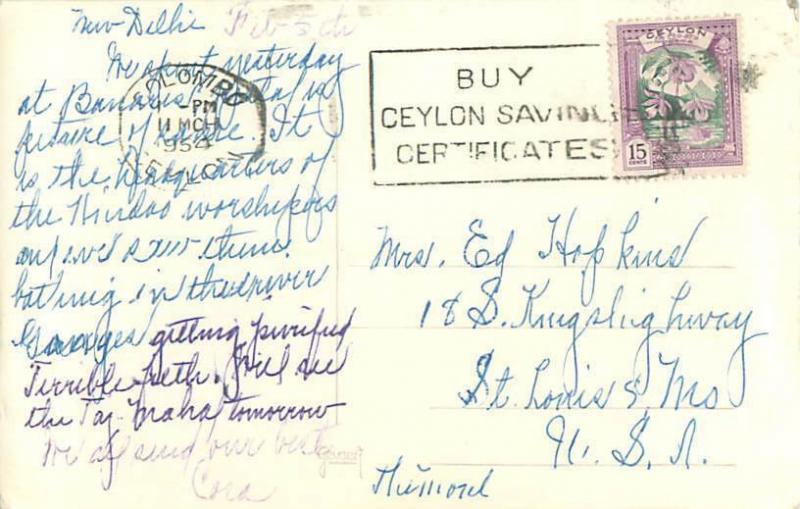 New Delhi Feb 5th
We spent yesterday
at Banaris
picture of above. It
is the headquarters of
the Hindoo worshipers
and we saw them
bathing in the river
Ganges getting purified
Terrible filth. Will see
the Taj Maha tomorrow
We all send our best
Cora
COLOMBO
PM
11 MCH
1954
CEYLON
BUY
CEYLON SAVINGS
CERTIFICATES
CEYLON
15
CENTS
Mrs. Ed Hopkins
18 S. Kingslighway
St. Louis 8, Mo
U. S. A.